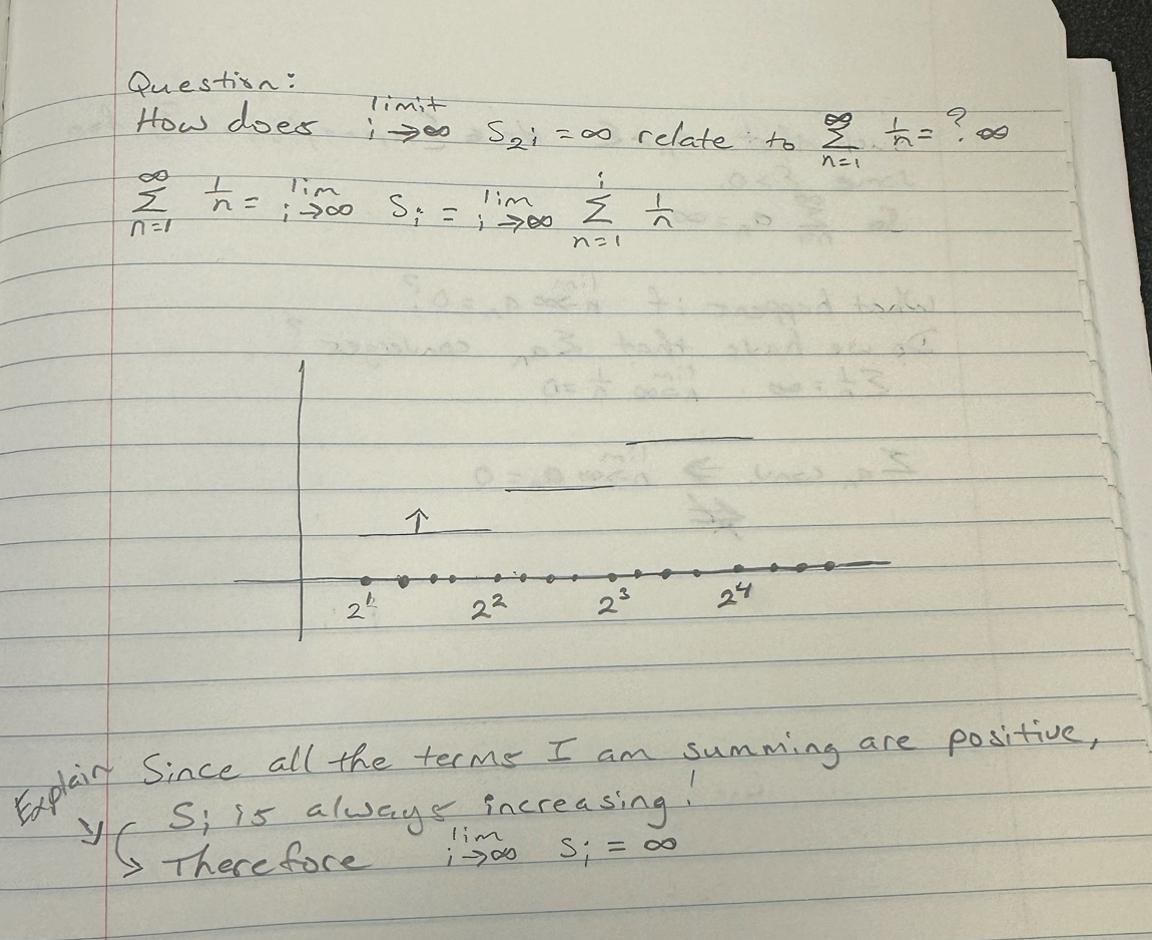 Question:
How does limit i→∞ S_{2^i} = ∞ relate to ∑_{n=1}^{∞} 1/n = ? ∞
∑_{n=1}^{∞} 1/n = lim i→∞ S_i = lim i→∞ ∑_{n=1}^{i} 1/n
↑
2^1 2^2 2^3 2^4
Explain
Since all the terms I am summing are positive,
S_i is always increasing!
Therefore lim i→∞ S_i = ∞